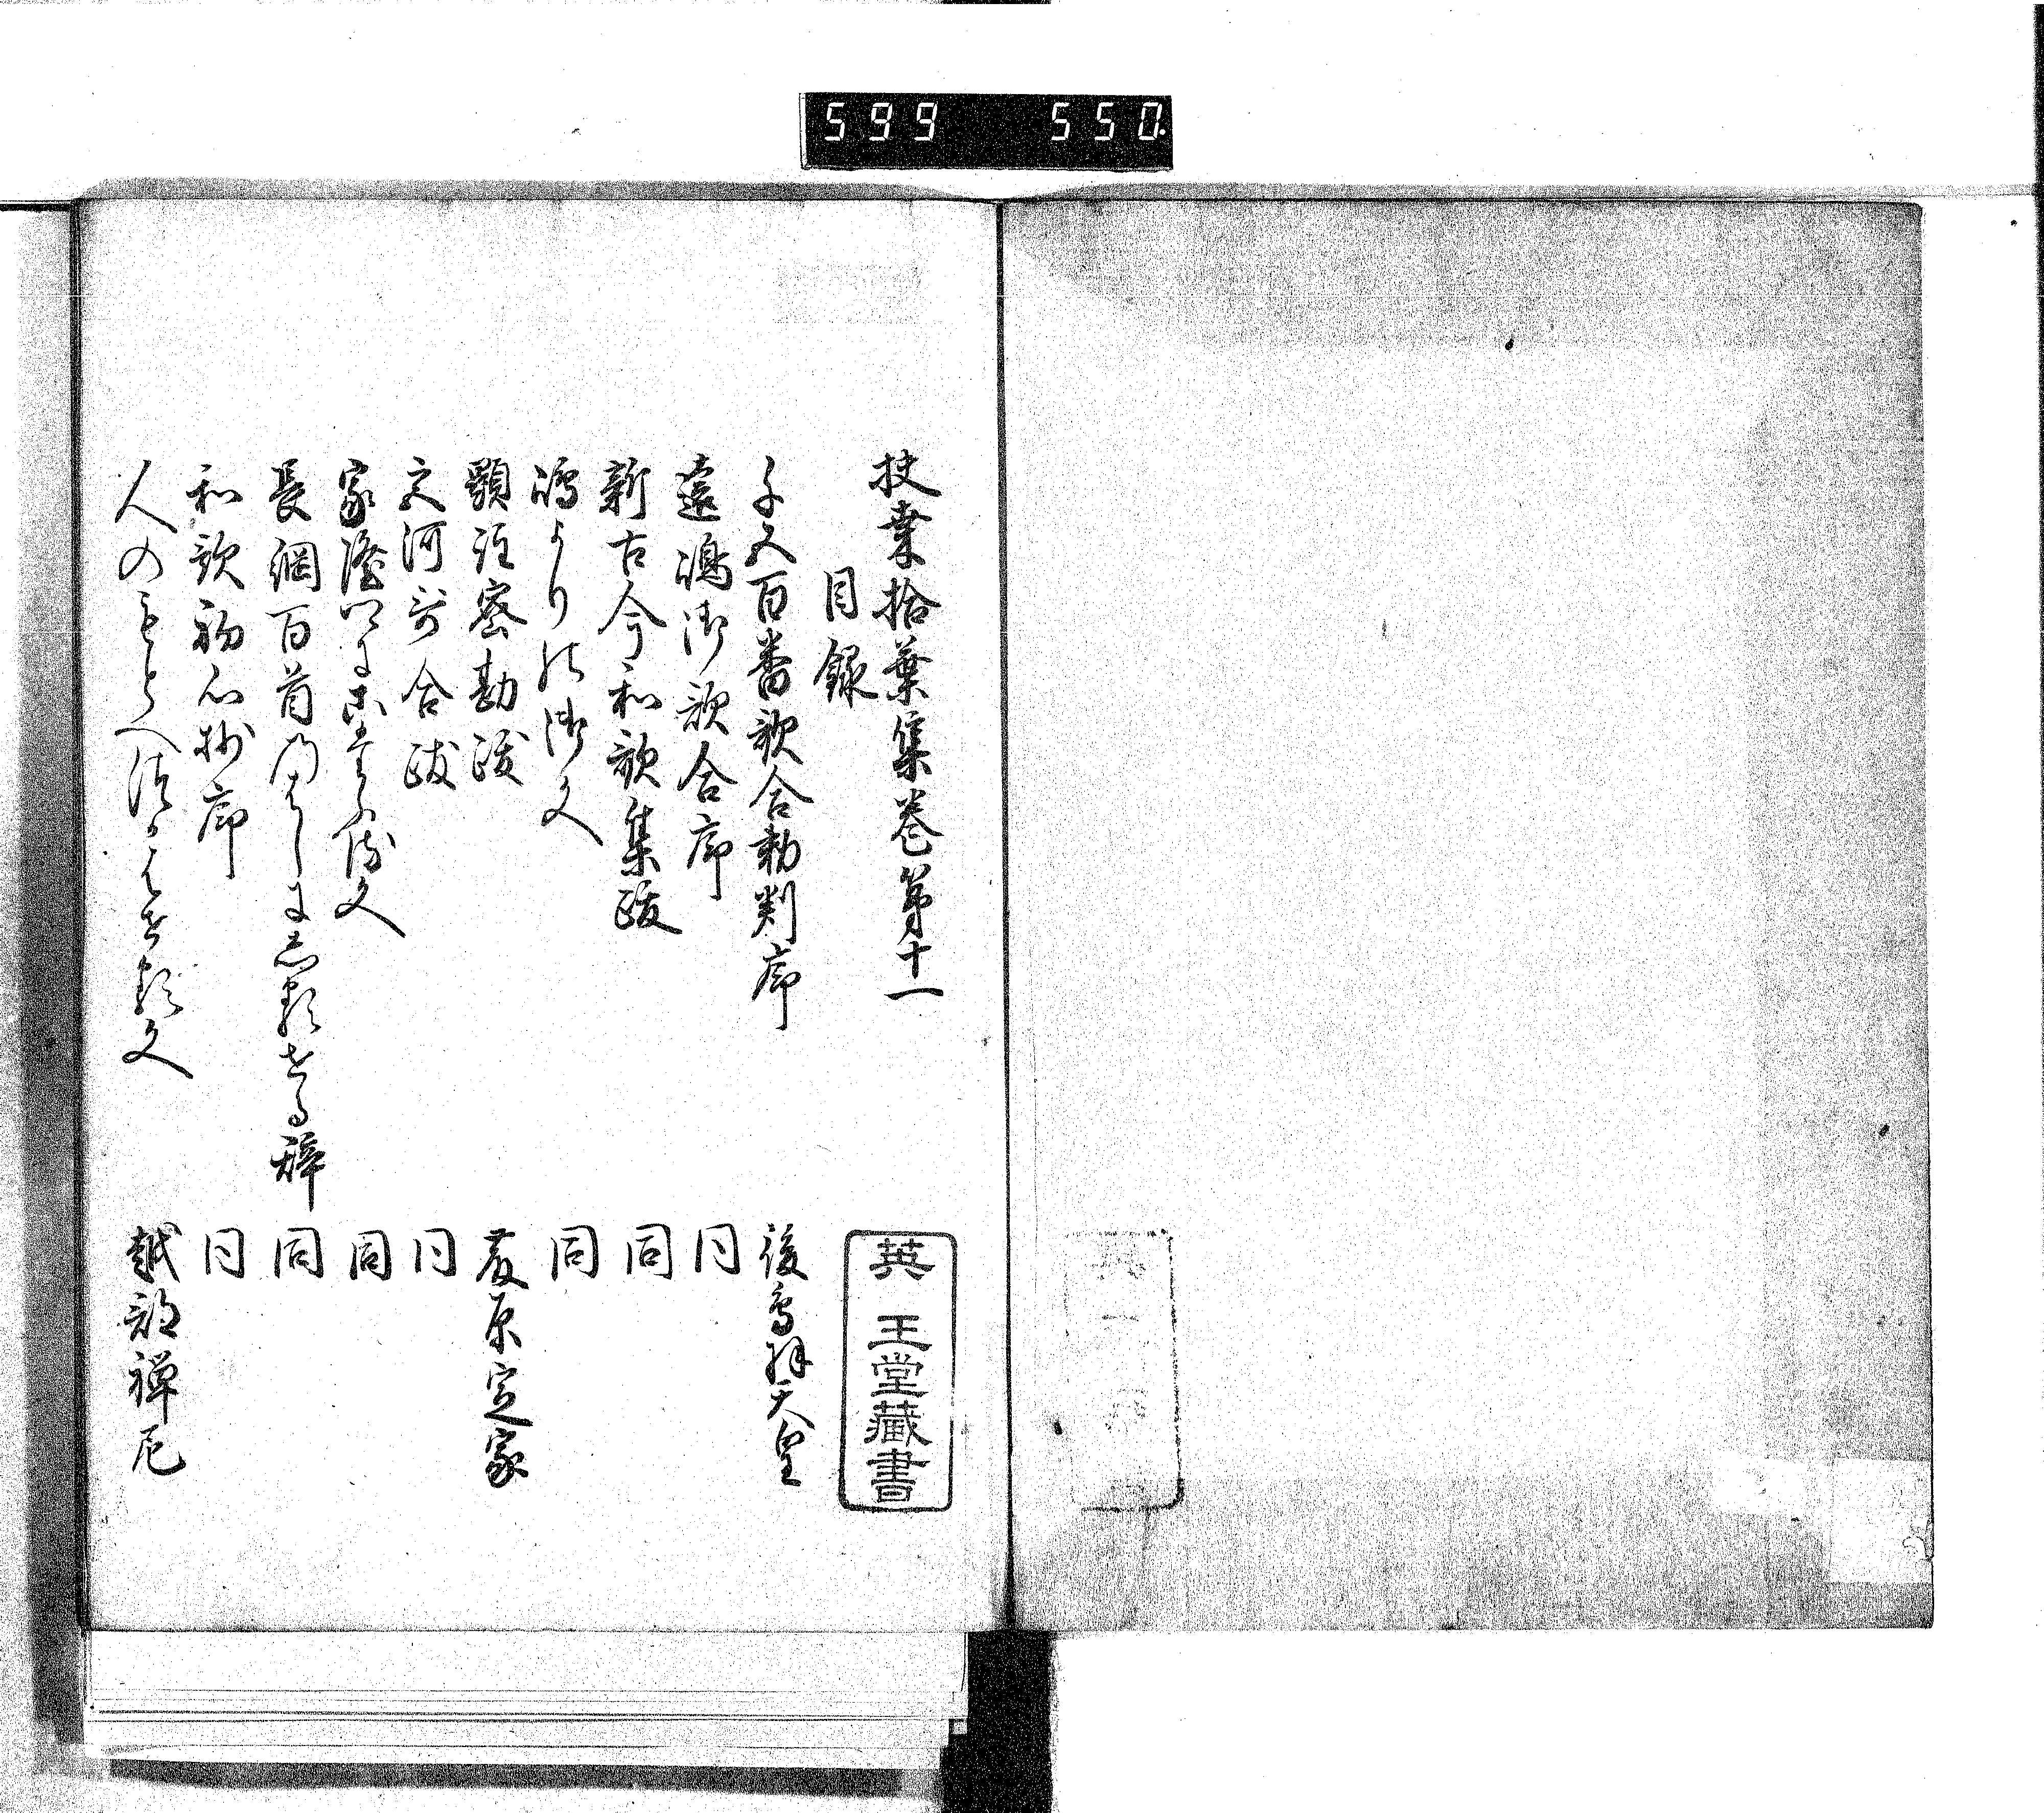 599 550
扶桒拾葉集巻第十一
目録
千五百番歌合勅判序 後鳥羽天皇
遠嶋御歌合序 同
新古今和歌集跋 同
嶋よりの御文 同
顕注密勘跋 藤原定家
河哥合跋 同
家隆 文 同
長綱百首のはしに志るせる辞 同
和歌初心抄序 同
人のもとへ つかはせる文 越部禅尼
英 王堂藏書